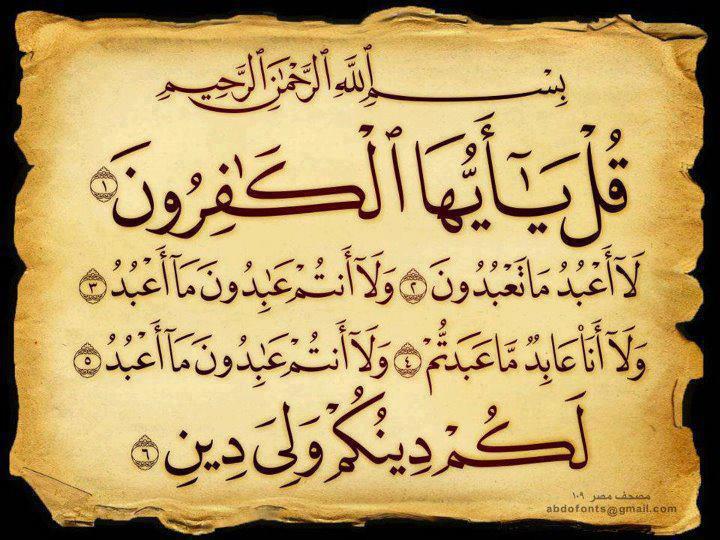 بِسْمِ ٱللَّهِ ٱلرَّحْمَٰنِ ٱلرَّحِيمِ
قُلْ يَـٰٓأَيُّهَا ٱلْكَـٰفِرُونَ ١
لَآ أَعْبُدُ مَا تَعْبُدُونَ ٢ وَلَآ أَنتُمْ عَـٰبِدُونَ مَآ أَعْبُدُ ٣
وَلَآ أَنَا۠ عَابِدٌ مَّا عَبَدتُّمْ ٤ وَلَآ أَنتُمْ عَـٰبِدُونَ مَآ أَعْبُدُ ٥
لَكُمْ دِينُكُمْ وَلِىَ دِينِ ٦
مصحف مصر ١٠٩
abdofonts@gmail.com